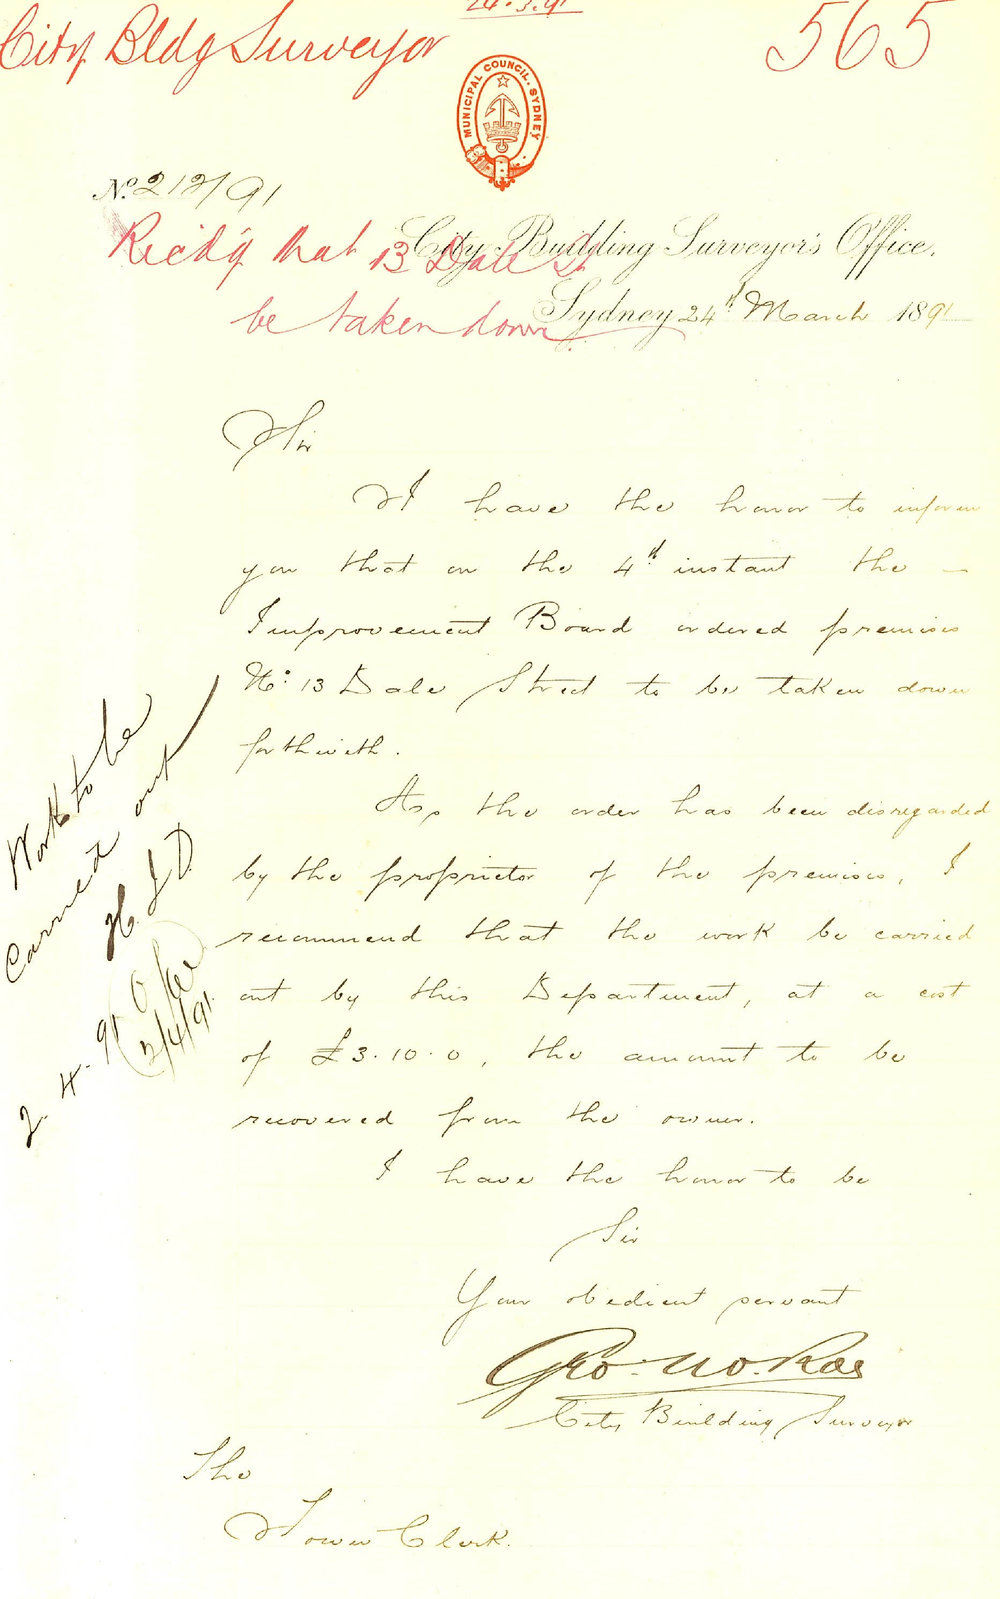 24.3.91
City Bldg Surveyor
565
MUNICIPAL COUNCIL. SYDNEY
No. 212/91
City Building Surveyor's Office.
that 13 Dale St
be taken down
Sydney 24th March 1891
Sir
I have the honor to inform
you that on the 4th instant the
Improvement Board ordered premises
No. 13 Dale Street to be taken down
forthwith.
As the order has been disregarded
by the proprietor of the premises, I
recommend that the work be carried
out by this Department, at a cost
of £3.10.0, the amount to be
recovered from the owner.
I have the honor to be
Sir
Your obedient servant
Geo.
City Building Surveyor
The
Town Clerk.
Work to be
Carried out
H.J.D.
2.4.91
2/4/91